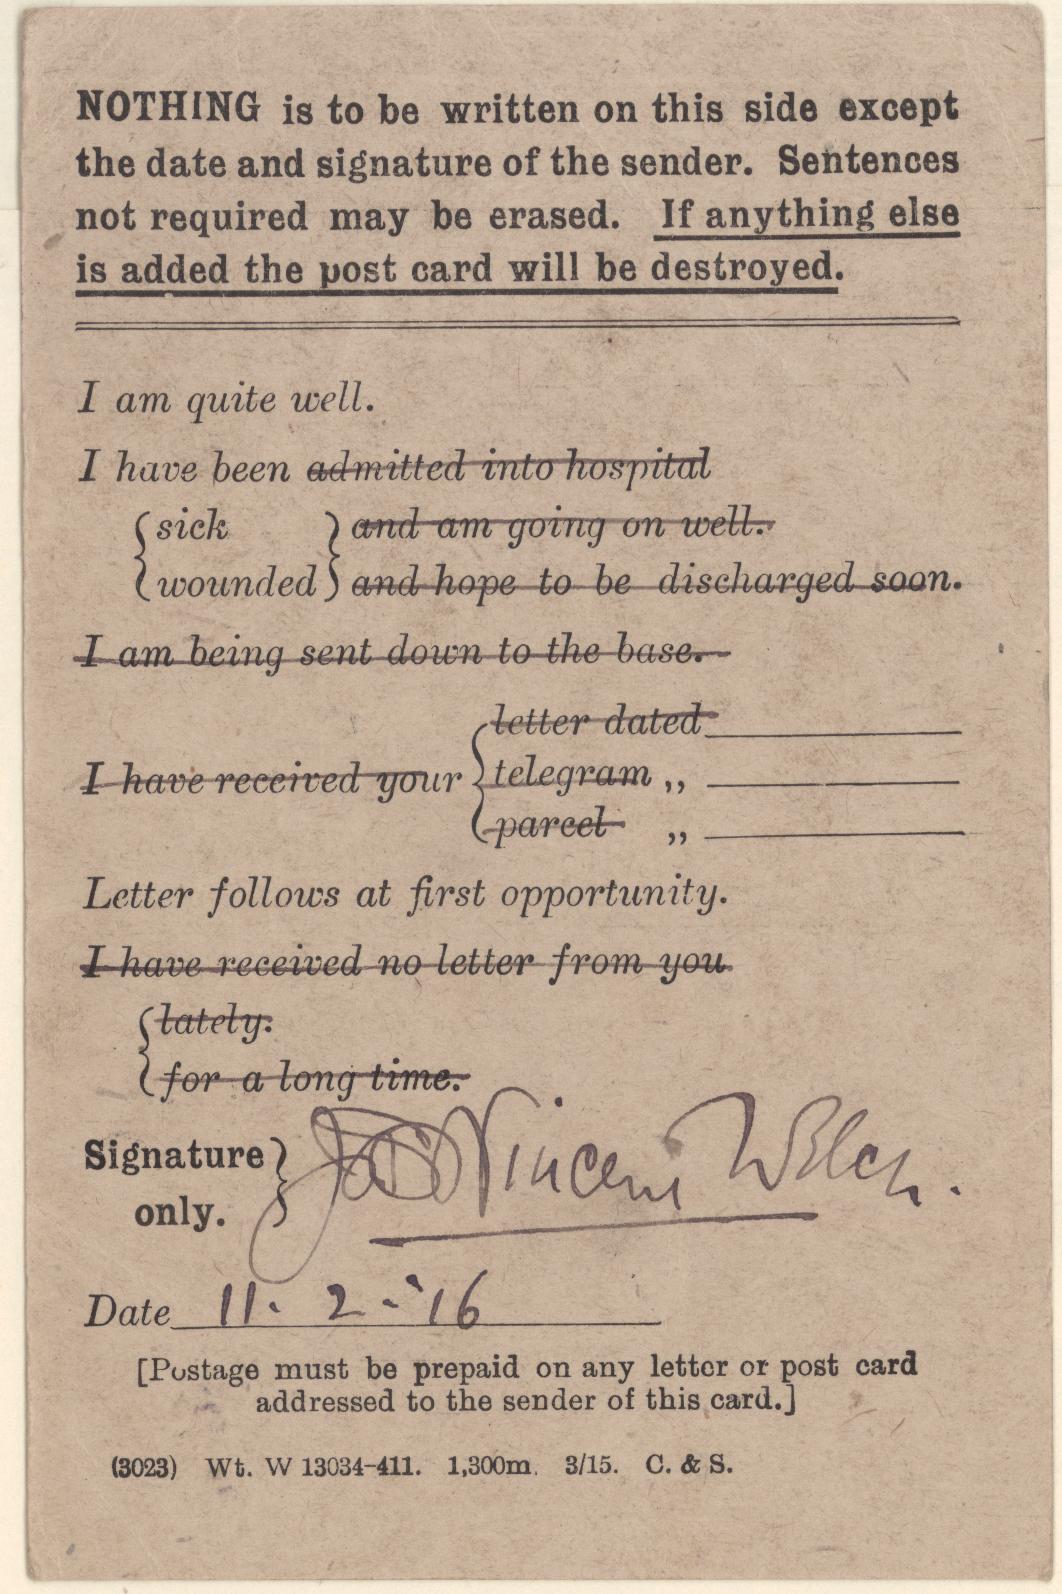 NOTHING is to be written on this side except
the date and signature of the sender. Sentences
not required may be erased. If anything else
is added the post card will be destroyed.
I am quite well.
I have been admitted into hospital
sick and am going on well.
wounded and hope to be discharged soon.
I am being sent down to the base.
letter dated
I have received your telegram „
parcel „
Letter follows at first opportunity.
I have received no letter from you
lately.
for a long time.
Signature
only.
Vincent Welch.
Date 11. 2. '16
[Postage must be prepaid on any letter or post card
addressed to the sender of this card.]
(3023) Wt. W 13034-411. 1,300m. 3/15. C. & S.